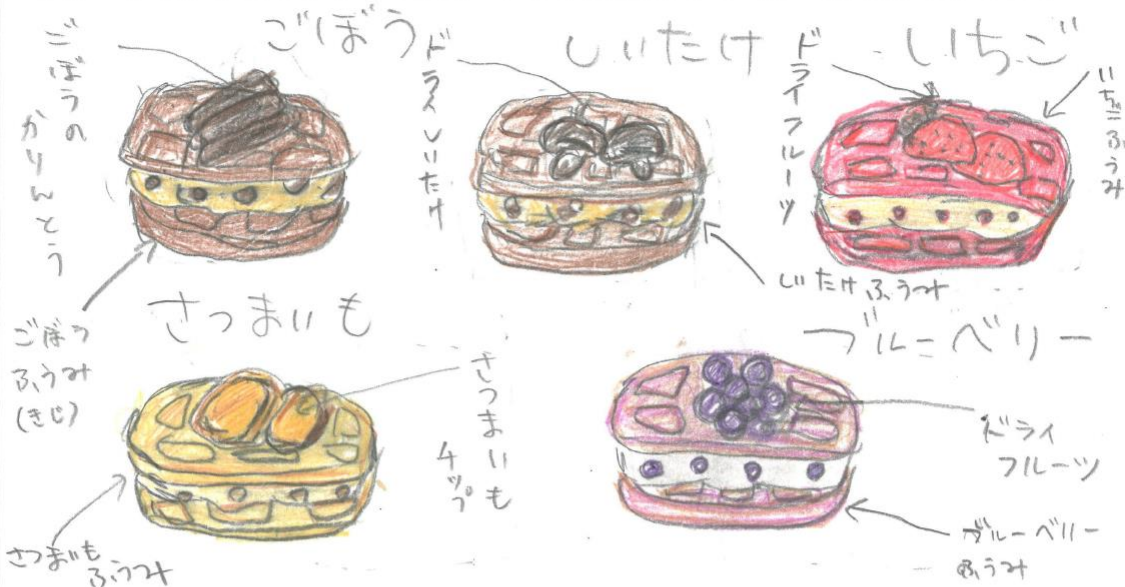 ごぼう
ごぼうの
かりんとう
ごぼう
ふうみ
(きじ)
しいたけ
ドライしいたけ
しいたけふうみ
いちご
ドライフルーツ
いちごふうみ
さつまいも
さつまいも
チップ
さつまいも
ふうみ
ブルーベリー
ドライ
フルーツ
ブルーベリー
ふうみ